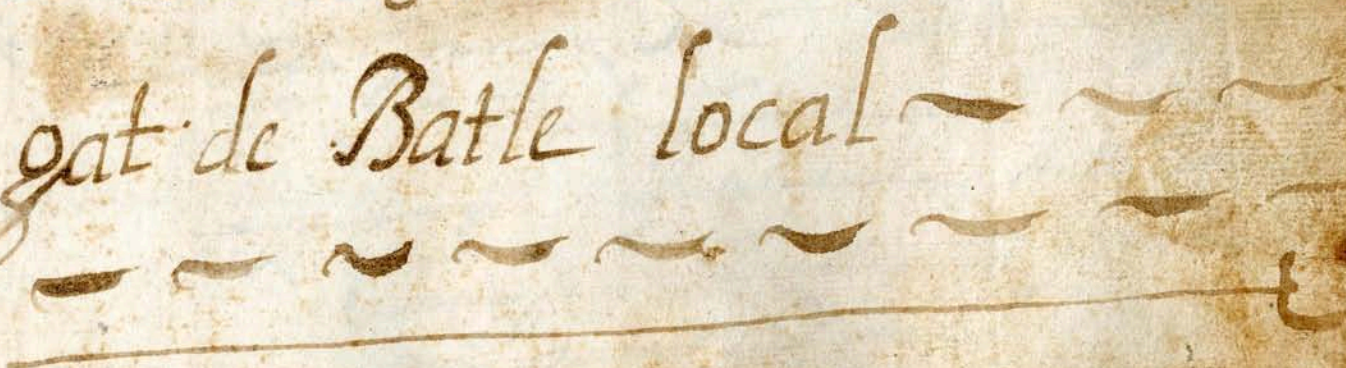 gat de Batle local